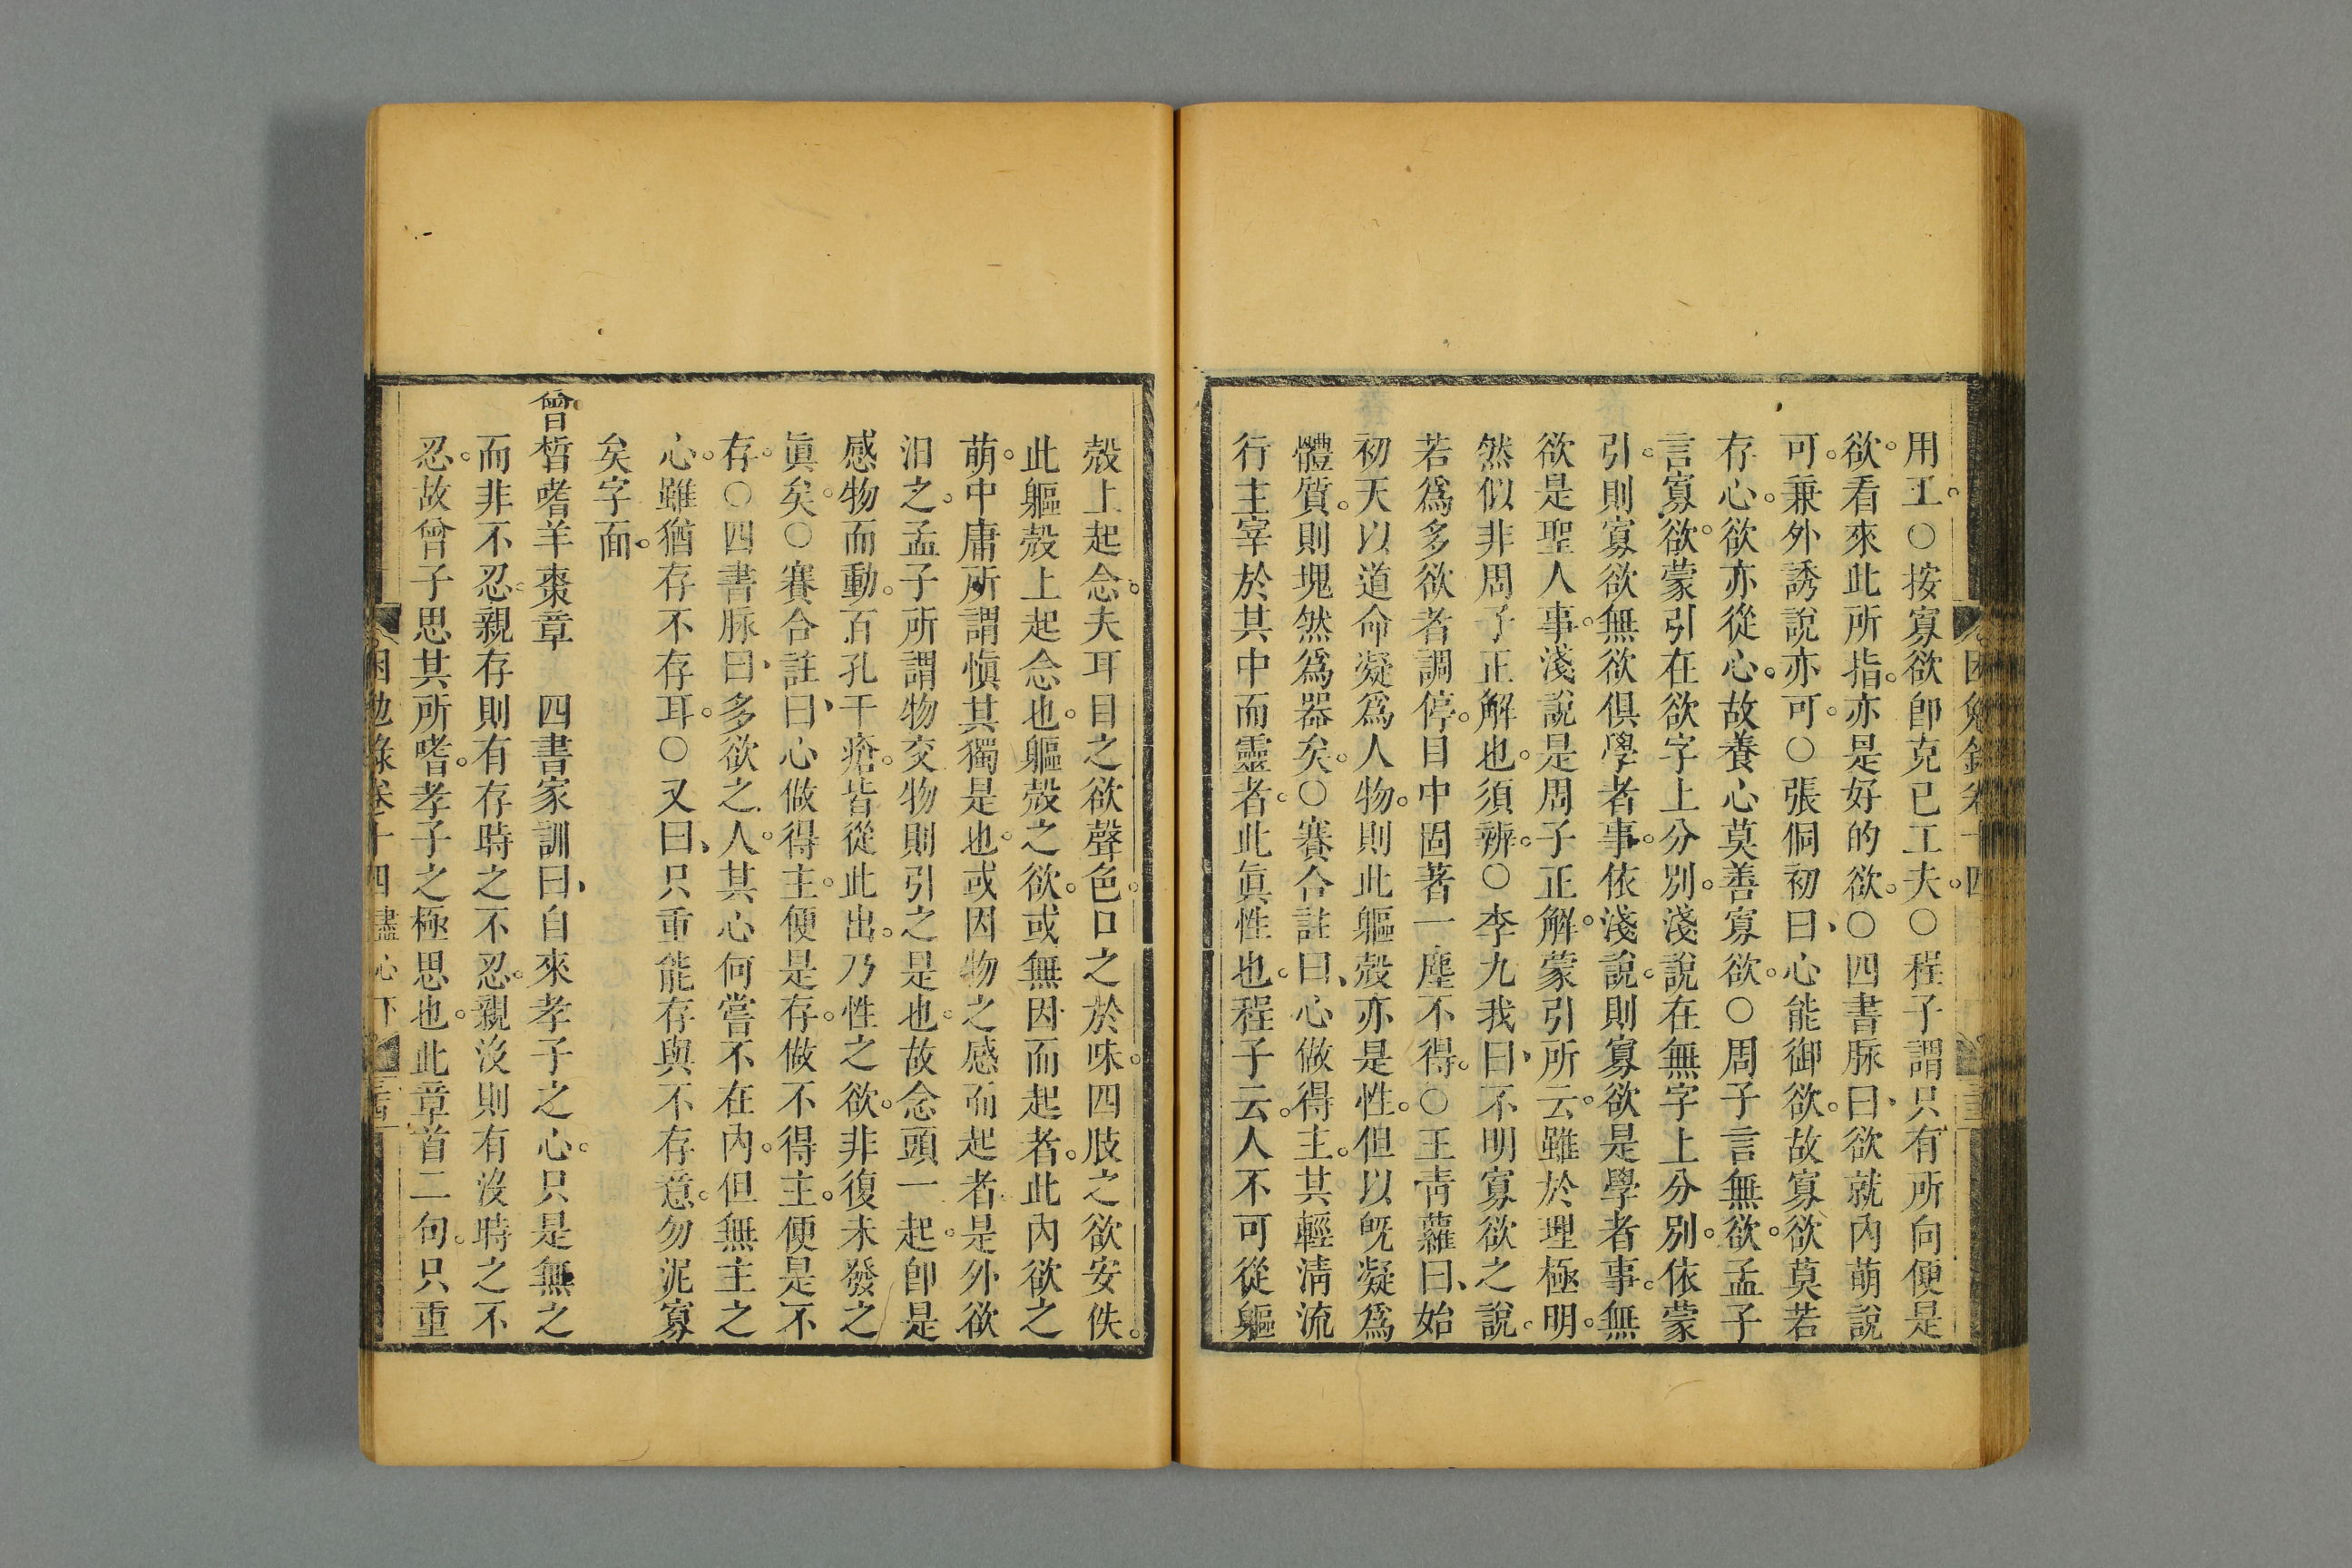 用工。○按寡欲卽克已工夫。○程子謂只有所向便是
欲。看來此所指。亦是好的欲。○四書脉曰、欲就內萌說
可。兼外誘說亦可。○張侗初曰、心能御欲。故寡欲莫若
存心。欲亦從心。故養心莫善寡欲。○周子言無欲。孟子
言寡欲。蒙引在欲字上分別。淺說在無字上分別。依蒙
引。則寡欲無欲俱學者事。依淺說。則寡欲是學者事。無
欲是聖人事。淺說是周子正解。蒙引所云。雖於理極明。
然似非周子正解也。須辨。○李九我曰、不明寡欲之說。
若爲多欲者調停。目中固著一塵不得。○王靑蘿曰、始
初天以道命凝爲人物。則此軀殼亦是性。但以旣凝爲
體質。則塊然爲器矣。○賽合註曰、心做得主。其輕淸流
行主宰於其中而靈者。此眞性也。程子云。人不可從軀
殼上起念。夫耳目之欲聲色。口之於味。四肢之欲安佚。
此軀殼上起念也。軀殼之欲。或無因而起者。此內欲之
萌。中庸所謂愼其獨是也。或因物之感而起者。是外欲
汨之。孟子所謂物交物則引之是也。故念頭一起。卽是
感物而動。百孔千瘡。皆從此出。乃性之欲。非復未發之
眞矣。○賽合註曰、心做得主。便是存。做不得主。便是不
存。○四書脉曰、多欲之人。其心何嘗不在內。但無主之
心。雖猶存不存耳。○又曰、只重能存與不存意。勿泥寡
矣字面。
曾晳嗜羊棗章　四書家訓曰、自來孝子之心。只是無之
而非不忍。親存則有存時之不忍。親沒則有沒時之不
忍。故曾子思其所嗜。孝子之極思也。此章首二句。只重
困勉錄卷十四 盡心下